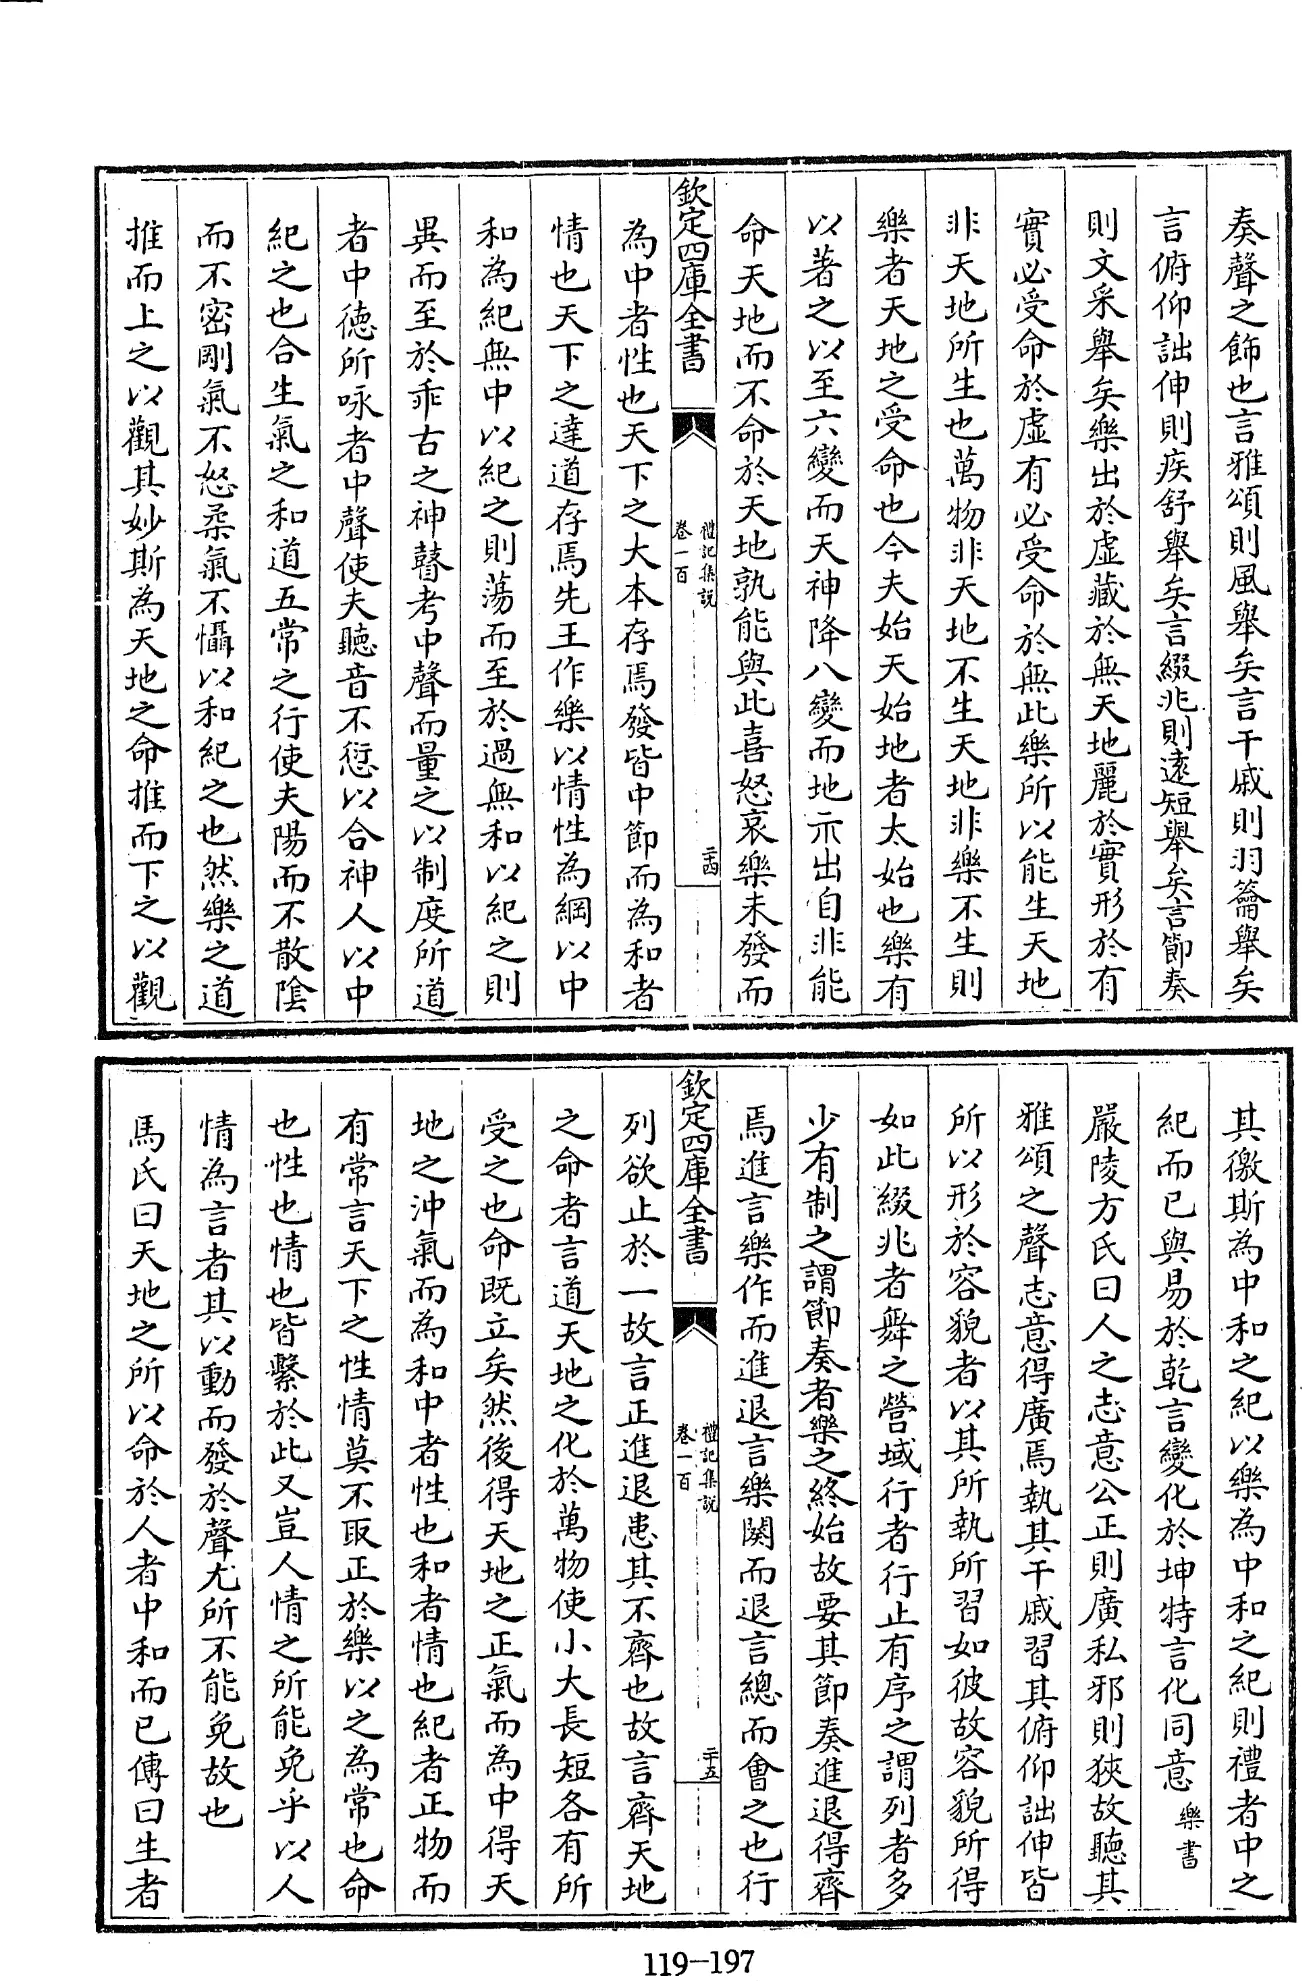 奏聲之飾也言雅頌則風舉矣言干戚則羽籥舉矣
言俯仰詘伸則疾舒舉矣言綴兆則遠短舉矣言節奏
則文采舉矣樂出於虛藏於無天地麗於實形於有
實必受命於虛有必受命於無此樂所以能生天地
非天地所生也萬物非天地不生天地非樂不生則
樂者天地之受命也今夫始天始地者太始也樂有
以著之以至六變而天神降八變而地示出自非能
命天地而不命於天地孰能與此喜怒哀樂未發而
欽定四庫全書
禮記集說
卷一百
二十四
為中者性也天下之大本存焉發皆中節而為和者
情也天下之達道存焉先王作樂以情性為綱以中
和為紀無中以紀之則蕩而至於過無和以紀之則
異而至於乖古之神瞽考中聲而量之以制度所道
者中德所咏者中聲使夫聽音不愆以合神人以中
紀之也合生氣之和道五常之行使夫陽而不散陰
而不密剛氣不怒柔氣不懾以和紀之也然樂之道
推而上之以觀其妙斯為天地之命推而下之以觀
其徼斯為中和之紀以樂為中和之紀則禮者中之
紀而已與易於乾言變化於坤特言化同意樂書
嚴陵方氏曰人之志意公正則廣私邪則狹故聽其
雅頌之聲志意得廣焉執其干戚習其俯仰詘伸皆
所以形於容貌者以其所執所習如彼故容貌所得
如此綴兆者舞之營域行者行止有序之謂列者多
少有制之謂節奏者樂之終始故要其節奏進退得齊
焉進言樂作而進退言樂闋而退言總而會之也行
欽定四庫全書
禮記集說
卷一百
二十五
列欲止於一故言正進退患其不齊也故言齊天地
之命者言道天地之化於萬物使小大長短各有所
受之也命既立矣然後得天地之正氣而為中得天
地之沖氣而為和中者性也和者情也紀者正物而
有常言天下之性情莫不取正於樂以之為常也命
也性也情也皆繫於此又豈人情之所能免乎以人
情為言者其以動而發於聲尤所不能免故也
馬氏曰天地之所以命於人者中和而已傳曰生者
119-197